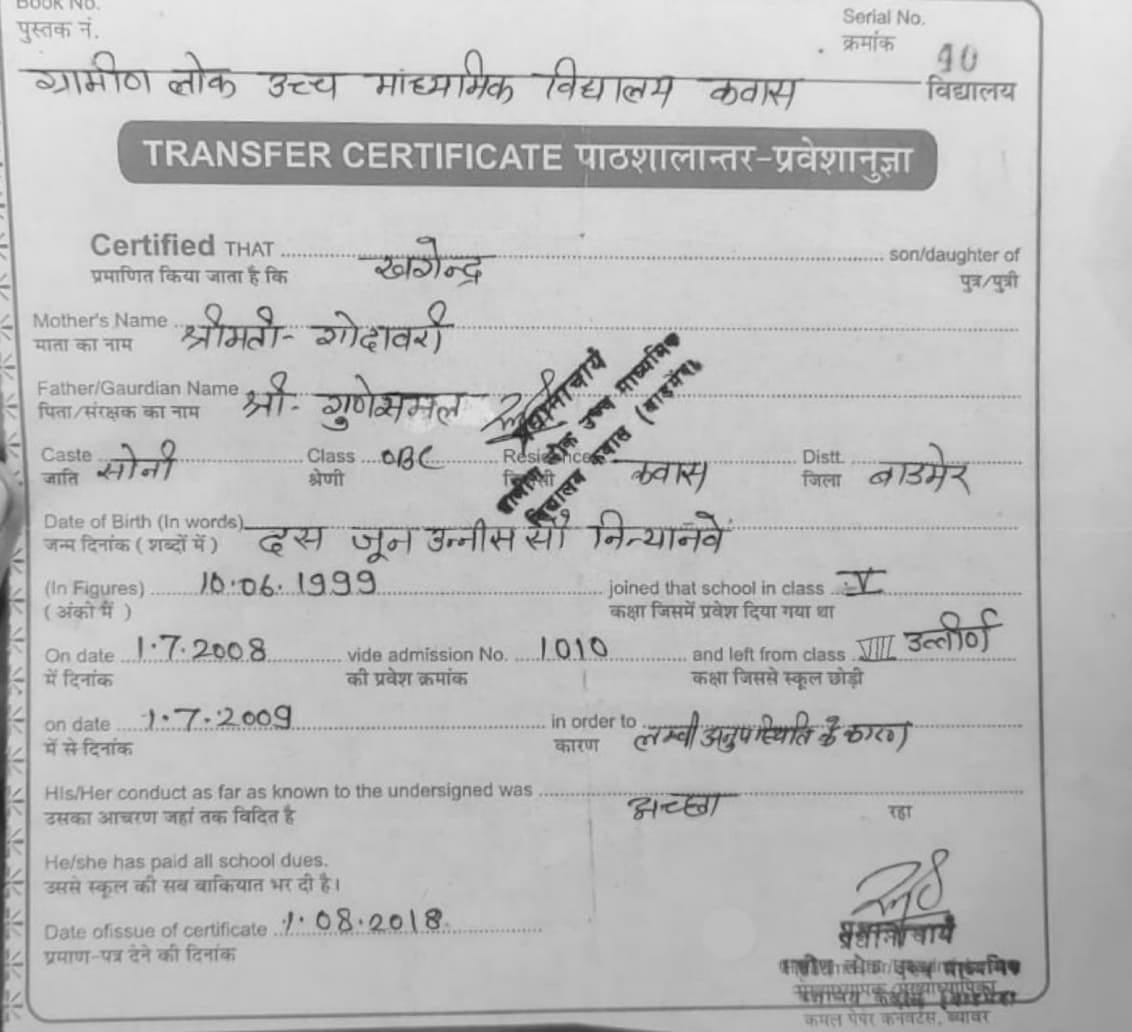 BOOK NO.
पुस्तक नं.
Serial No.
क्रमांक 10
ग्रामीण लोक उच्च माध्यमिक विद्यालय कवास विद्यालय
TRANSFER CERTIFICATE पाठशालान्तर-प्रवेशानुज्ञा
Certified THAT खगेन्द्र son/daughter of
प्रमाणित किया जाता है कि पुत्र/पुत्री
Mother's Name श्रीमती- गोदावरी
माता का नाम
Father/Gaurdian Name श्री- गुणेसमल
पिता/संरक्षक का नाम
प्रधानाचार्य
ग्रामीण लोक उच्च माध्यमिक
विद्यालय कवास (बाड़मेर)
Caste सोनी Class OBC Residence कवास Distt. बाडमेर
जाति श्रेणी जिला
Date of Birth (In words) दस जून उन्नीस सौ निन्यानवें
जन्म दिनांक ( शब्दों में )
(In Figures) 10.06.1999 joined that school in class V
( अंको मैं ) कक्षा जिसमें प्रवेश दिया गया था
On date 1.7.2008 vide admission No. 1010 and left from class VIII उत्तीर्ण
में दिनांक की प्रवेश क्रमांक कक्षा जिससे स्कूल छोड़ी
on date 1.7.2009 in order to लम्बी अनुपस्थिति के कारण
में से दिनांक कारण
His/Her conduct as far as known to the undersigned was अच्छा
उसका आचरण जहां तक विदित है रहा
He/she has paid all school dues.
उससे स्कूल की सब बाकियात भर दी है।
Date ofissue of certificate 1.08.2018
प्रमाण-पत्र देने की दिनांक
प्रधानाचार्य
ग्रामीण लोक उच्च माध्यमिक
कमल पेपर कनवर्टस, ब्यावर